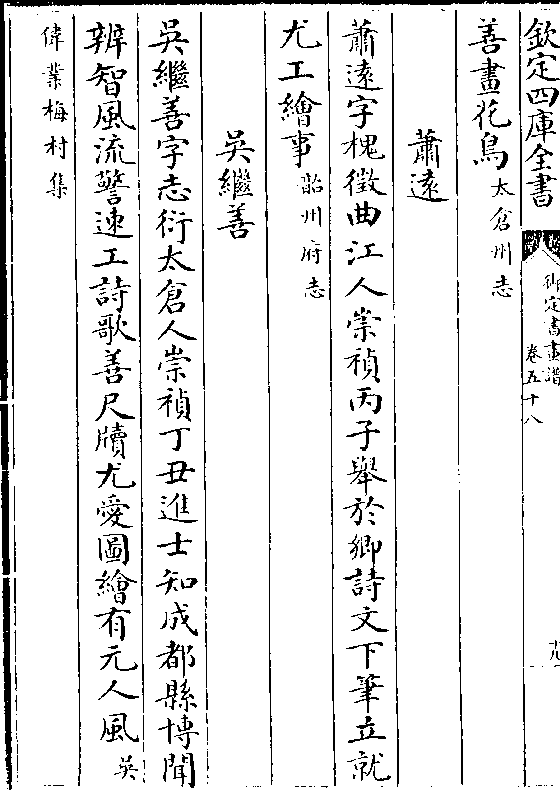 欽定四庫全書
御定書畫譜
卷五十八
善畫花鳥太倉州志
蕭遠
蕭遠字槐徵曲江人崇禎丙子舉於鄉詩文下筆立就
尤工繪事韶州府志
吳繼善
吳繼善字志衍太倉人崇禎丁丑進士知成都縣博聞
辨智風流警速工詩歌善尺牘尤愛圖繪有元人風吳
偉業梅村集